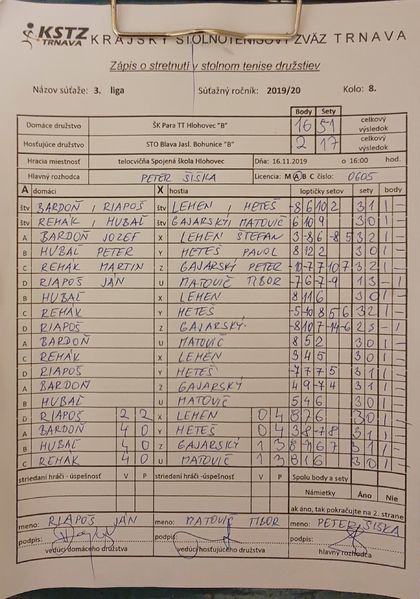 KSTZ
TRNAVA
KRAJSKÝ STOLNOTENISOVÝ ZVÄZ TRNAVA
Zápis o stretnutí v stolnom tenise družstiev
Názov súťaže: 3. liga Súťažný ročník: 2019/20 Kolo: 8.
Body Sety
Domáce družstvo ŠK Para TT Hlohovec "B" 16 51 celkový výsledok
Hosťujúce družstvo STO Blava Jasl. Bohunice "B" 2 17 celkový výsledok
Hracia miestnosť telocvičňa Spojená škola Hlohovec Dňa: 16.11.2019 o 16:00 hod.
Hlavný rozhodca PETER ŠIŠKA Licencia: M A B C číslo: 0605
A domáci X hostia loptičky setov sety body
štv BARDOŇ, RIAPOŠ štv LEHEN, HETEŠ -8 6 10 2 3 1 1 -
štv REHÁK, HUBAČ štv GAJARSKÝ, MATOVIČ 6 10 9 3 0 1 -
A BARDOŇ JOZEF X LEHEN ŠTEFAN 3 -8 6 -8 5 3 2 1 -
B HUBAČ PETER Y HETEŠ PAVOL 8 12 2 3 0 1 -
C REHÁK MARTIN Z GAJARSKÝ PETER -10 7 -7 10 7 3 2 1 -
D RIAPOŠ JÁN U MATOVIČ TIBOR -7 6 -7 -9 1 3 - 1
B HUBAČ X LEHEN 8 11 6 3 0 1 -
C REHÁK Y HETEŠ -5 -10 8 5 6 3 2 1 -
D RIAPOŠ Z GAJARSKÝ -8 10 7 -14 -6 2 3 - 1
A BARDOŇ U MATOVIČ 8 5 2 3 0 1 -
C REHÁK X LEHEN 3 4 5 3 0 1 -
D RIAPOŠ Y HETEŠ -7 7 7 5 3 1 1 -
A BARDOŇ Z GAJARSKÝ 4 9 -7 4 3 1 1 -
B HUBAČ U MATOVIČ 5 4 6 3 0 1 -
D RIAPOŠ 2 2 X LEHEN 0 4 8 7 6 3 0 1 -
A BARDOŇ 4 0 Y HETEŠ 0 4 3 8 -7 8 3 1 1 -
B HUBAČ 4 0 Z GAJARSKÝ 1 3 8 -9 6 7 3 1 1 -
C REHÁK 4 0 U MATOVIČ 1 3 8 1 6 3 0 1 -
striedaní hráči - úspešnosť V P striedaní hráči - úspešnosť V P Spolu body a sety
Námietky Áno Nie
ak áno, tak pokračujte na 2. strane
meno: RIAPOŠ JÁN meno: MATOVIČ TIBOR meno: PETER ŠIŠKA
podpis: podpis: podpis:
vedúci domáceho družstva vedúci hosťujúceho družstva hlavný rozhodca